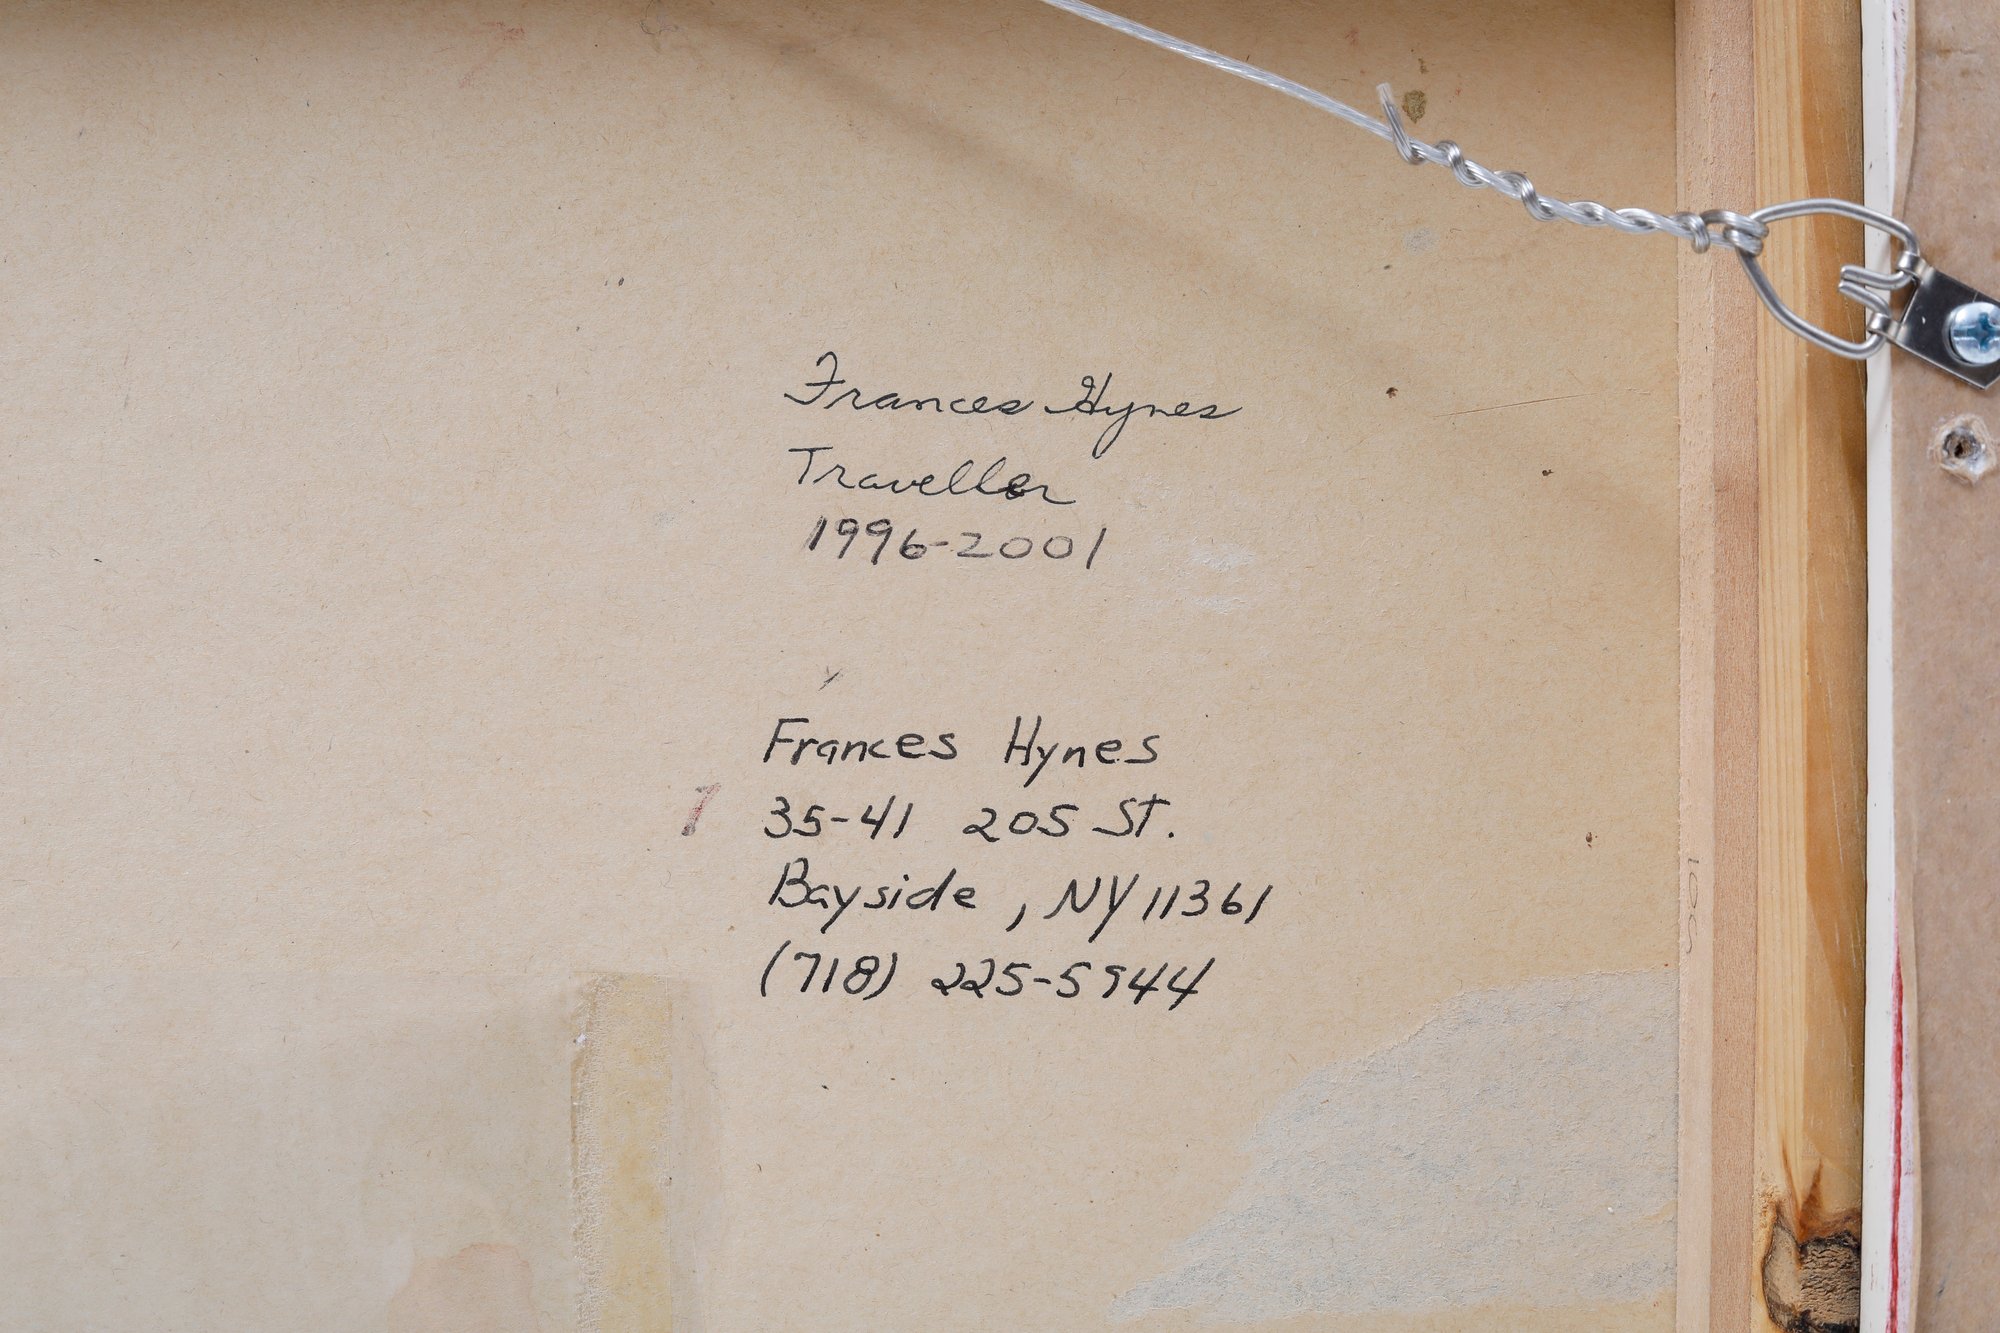 Frances Hynes
Traveller
1996-2001
Frances Hynes
35-41 205 St.
Bayside, NY 11361
(718) 225-5944